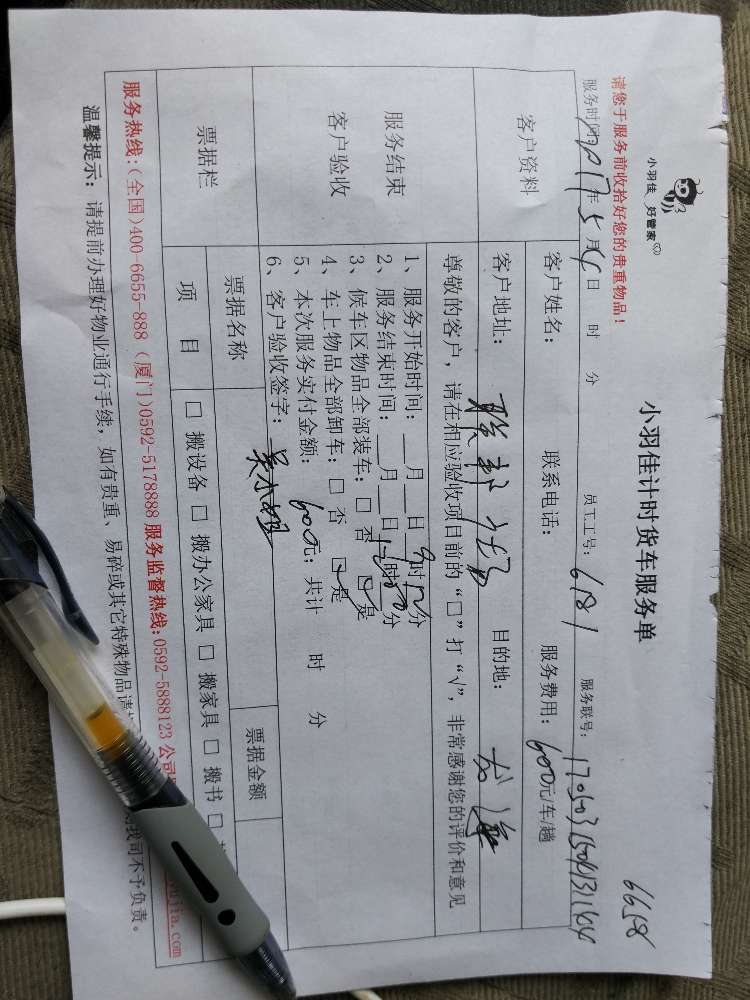 小羽佳 好管家
小羽佳计时货车服务单
6658
请您于服务前收拾好您的贵重物品！
服务时间：2017年5月4日 时 分 员工工号：6181 服务联号：
客户资料 客户姓名： 联系电话： 服务费用：600元/车/趟
客户地址： 目的地：
服务结束 客户验收
尊敬的客户，请在相应验收项目前的“□”打“√”，非常感谢您的评价和意见
1、服务开始时间：__月__日 9时 分
2、服务结束时间：__月__日 时 分
3、候车区物品全部装车：□ 否 □ 是
4、车上物品全部卸车：□ 否 □ 是
5、本次服务实付金额：600元；共计 时 分
6、客户验收签字：
票据栏 票据名称 票据金额
项 目 □ 搬设备 □ 搬办公家具 □ 搬家具 □ 搬书 □
服务热线：(全国)400-6655-888 (厦门)0592-5178888 服务监督热线：0592-5888123 公司 jia.com
温馨提示：请提前办理好物业通行手续，如有贵重、易碎或其它特殊物品请 我司不予负责。